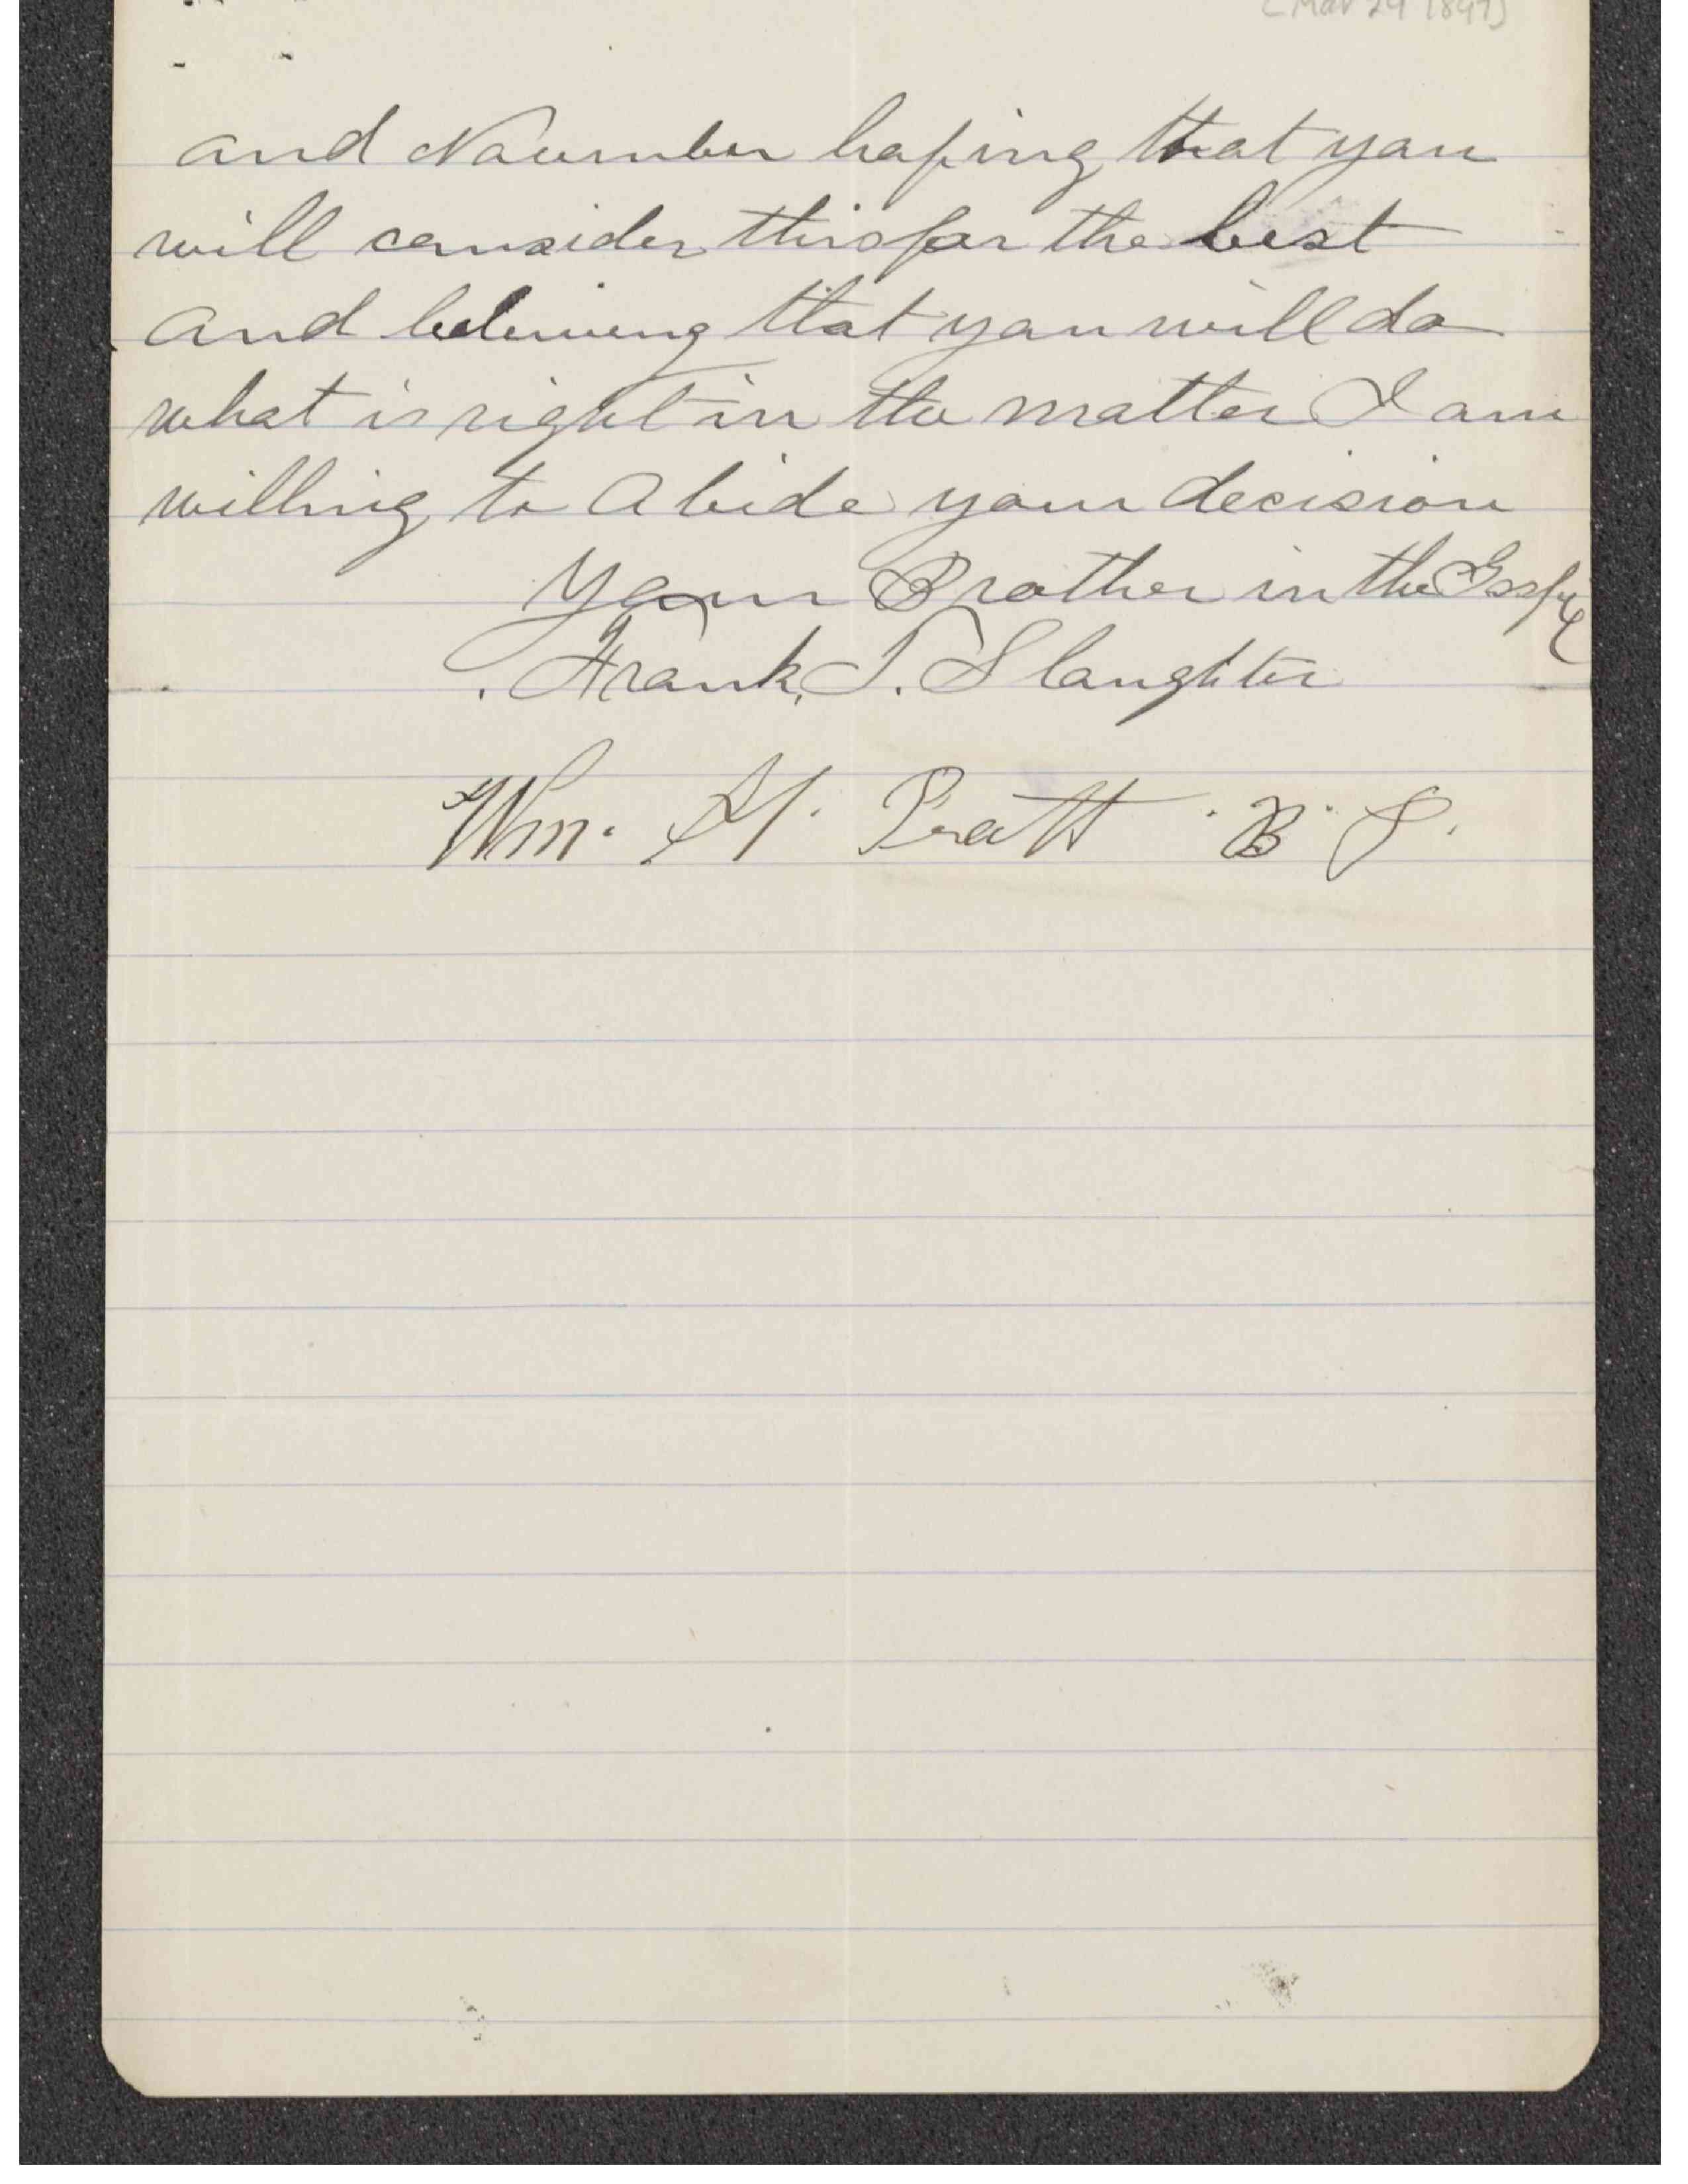 [Mar 29 1897]
and November hoping that you
will consider this for the best
and beleiving that you will do
what is right in the matter I am
willing to Abide your decision
Your Brother in the Gospel
Frank, T. Slaughter
Wm. H. Pratt. B. P.